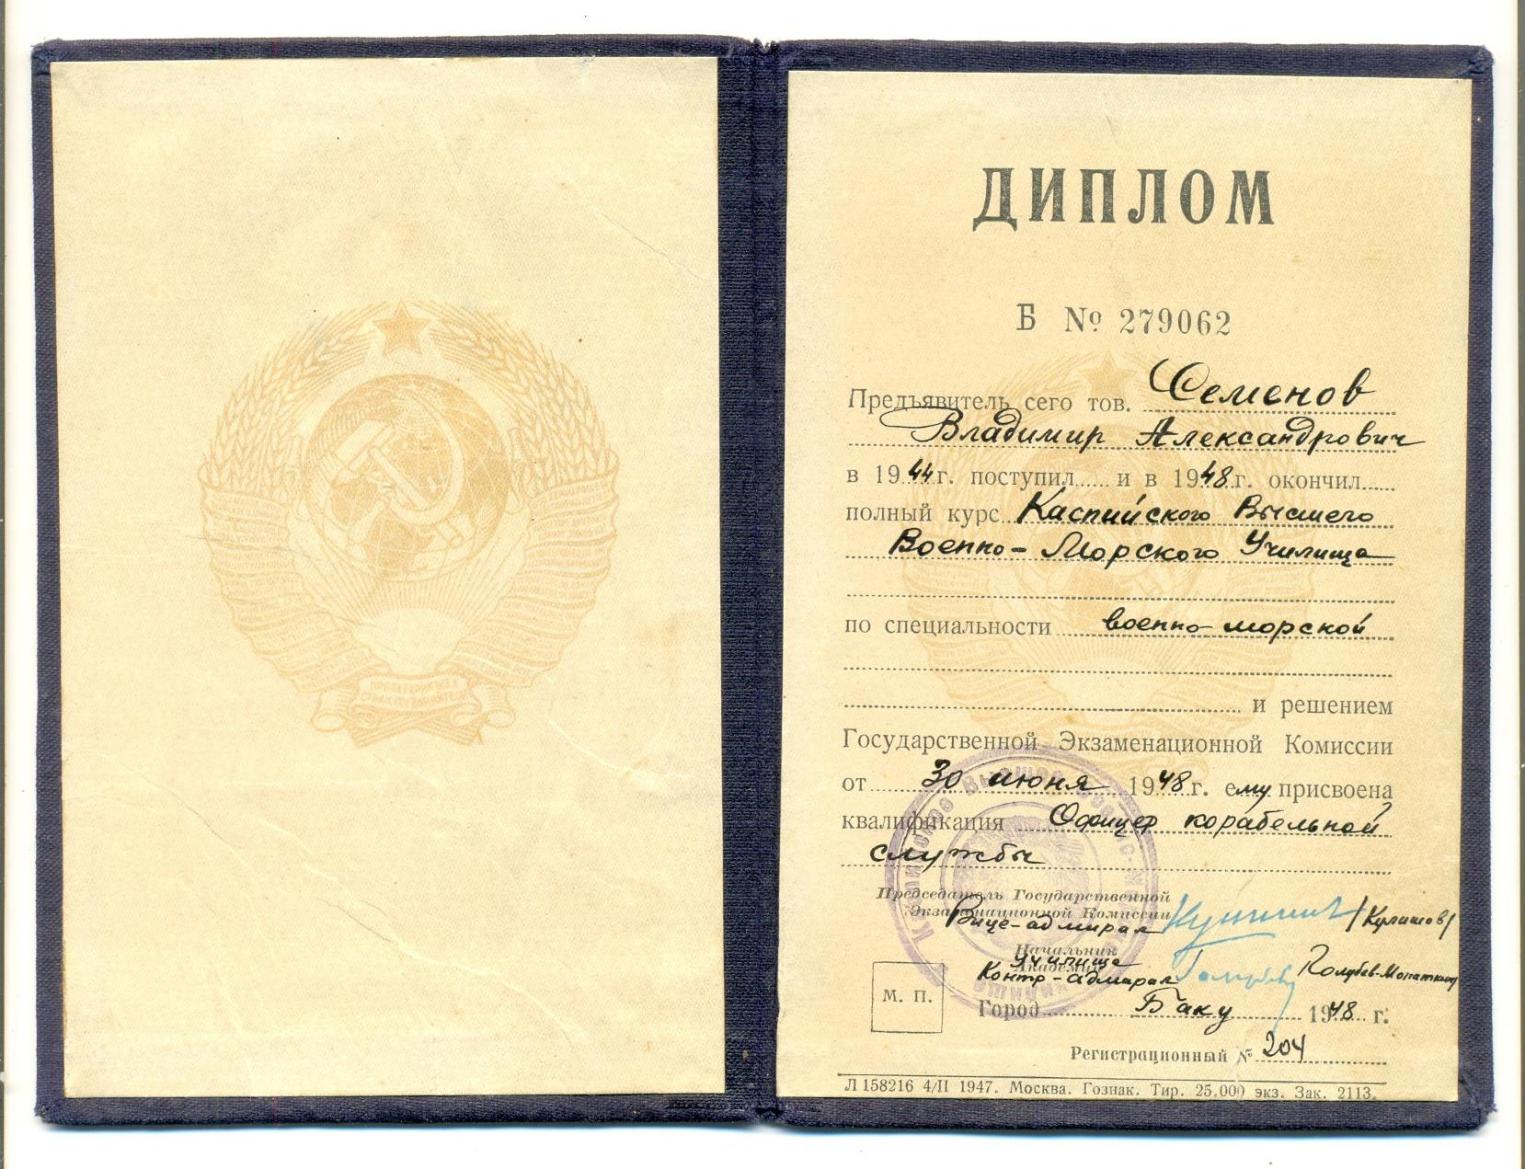 ДИПЛОМ
Б № 279062
Предъявитель сего тов. Семенов
Владимир Александрович
в 1944 г. поступил и в 1948 г. окончил
полный курс Каспийского Высшего
Военно-Морского Училища
по специальности военно-морской
и решением
Государственной Экзаменационной Комиссии
от 30 июня 1948 г. ему присвоена
квалификация Офицер корабельной
службы
Председатель Государственной
Экзаменационной Комиссии
Вице-адмирал /Кулишов/
Начальник
Училища
Контр-адмирал Голубев-Монаткин
М. П.
Город Баку 1948 г.
Регистрационный № 204
Л 158216 4/II 1947. Москва. Гознак. Тир. 25.000 экз. Зак. 2113.